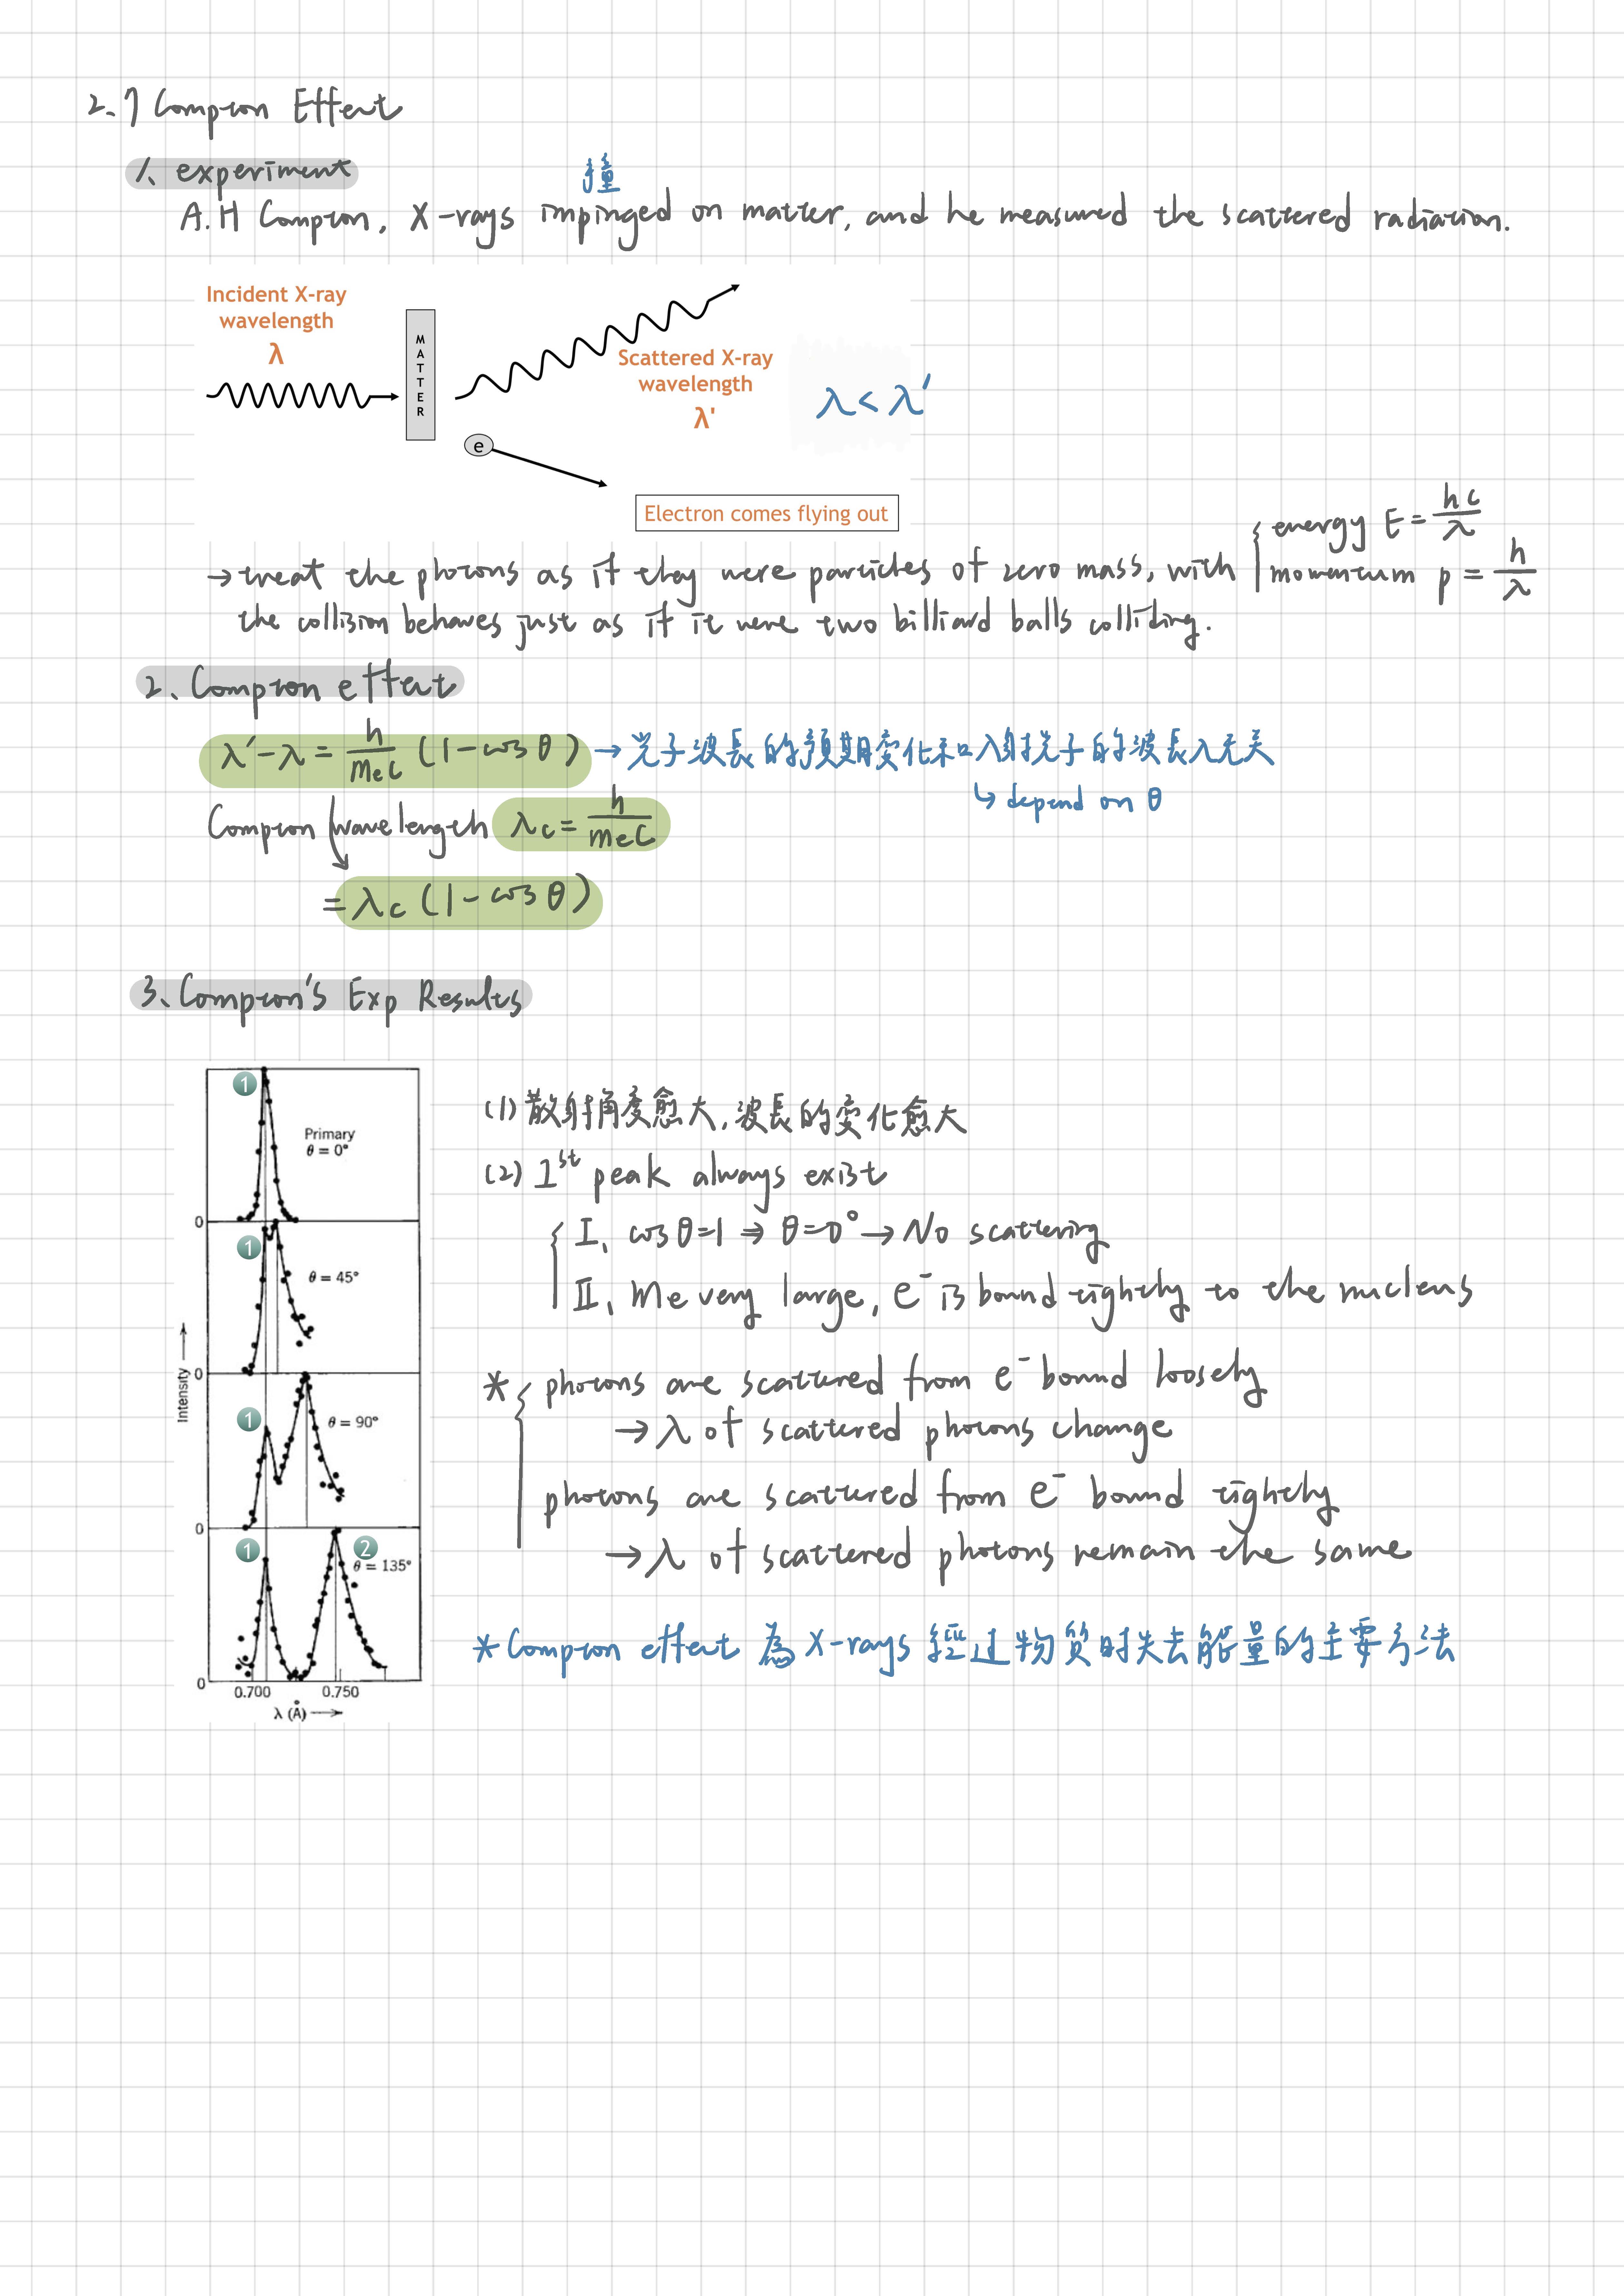 2.7 Compton Effect
1、experiment
撞
A.H Compton, X-rays impinged on matter, and he measured the scattered radiation.
Incident X-ray
wavelength
λ
MATTER
Scattered X-ray
wavelength
λ'
λ < λ'
e
Electron comes flying out
→ treat the photons as if they were particles of zero mass, with { energy E = hc/λ
momentum p = h/λ
the collision behaves just as if it were two billiard balls colliding.
2、Compton effect
λ' - λ = h/mec (1 - cos θ) → 光子波長的預期変化和入射光子的波長λ无关
↳ depend on θ
Compton wavelength λc = h/mec
= λc (1 - cos θ)
3、Compton's Exp Results
1
Primary
θ = 0°
0
1
θ = 45°
0
1
θ = 90°
0
1
2
θ = 135°
0
0.700 0.750
λ (Å) →
Intensity →
(1) 散射角度愈大,波長的変化愈大
(2) 1st peak always exist
I、cos θ = 1 ⇒ θ = 0° → No scattering
II、Me very large, e⁻ is bound tightly to the nucleus
* photons are scattered from e⁻ bound loosely
→ λ of scattered photons change
photons are scattered from e⁻ bound tightly
→ λ of scattered photons remain the same
* Compton effect 為 X-rays 經过物質时失去能量的主要方法